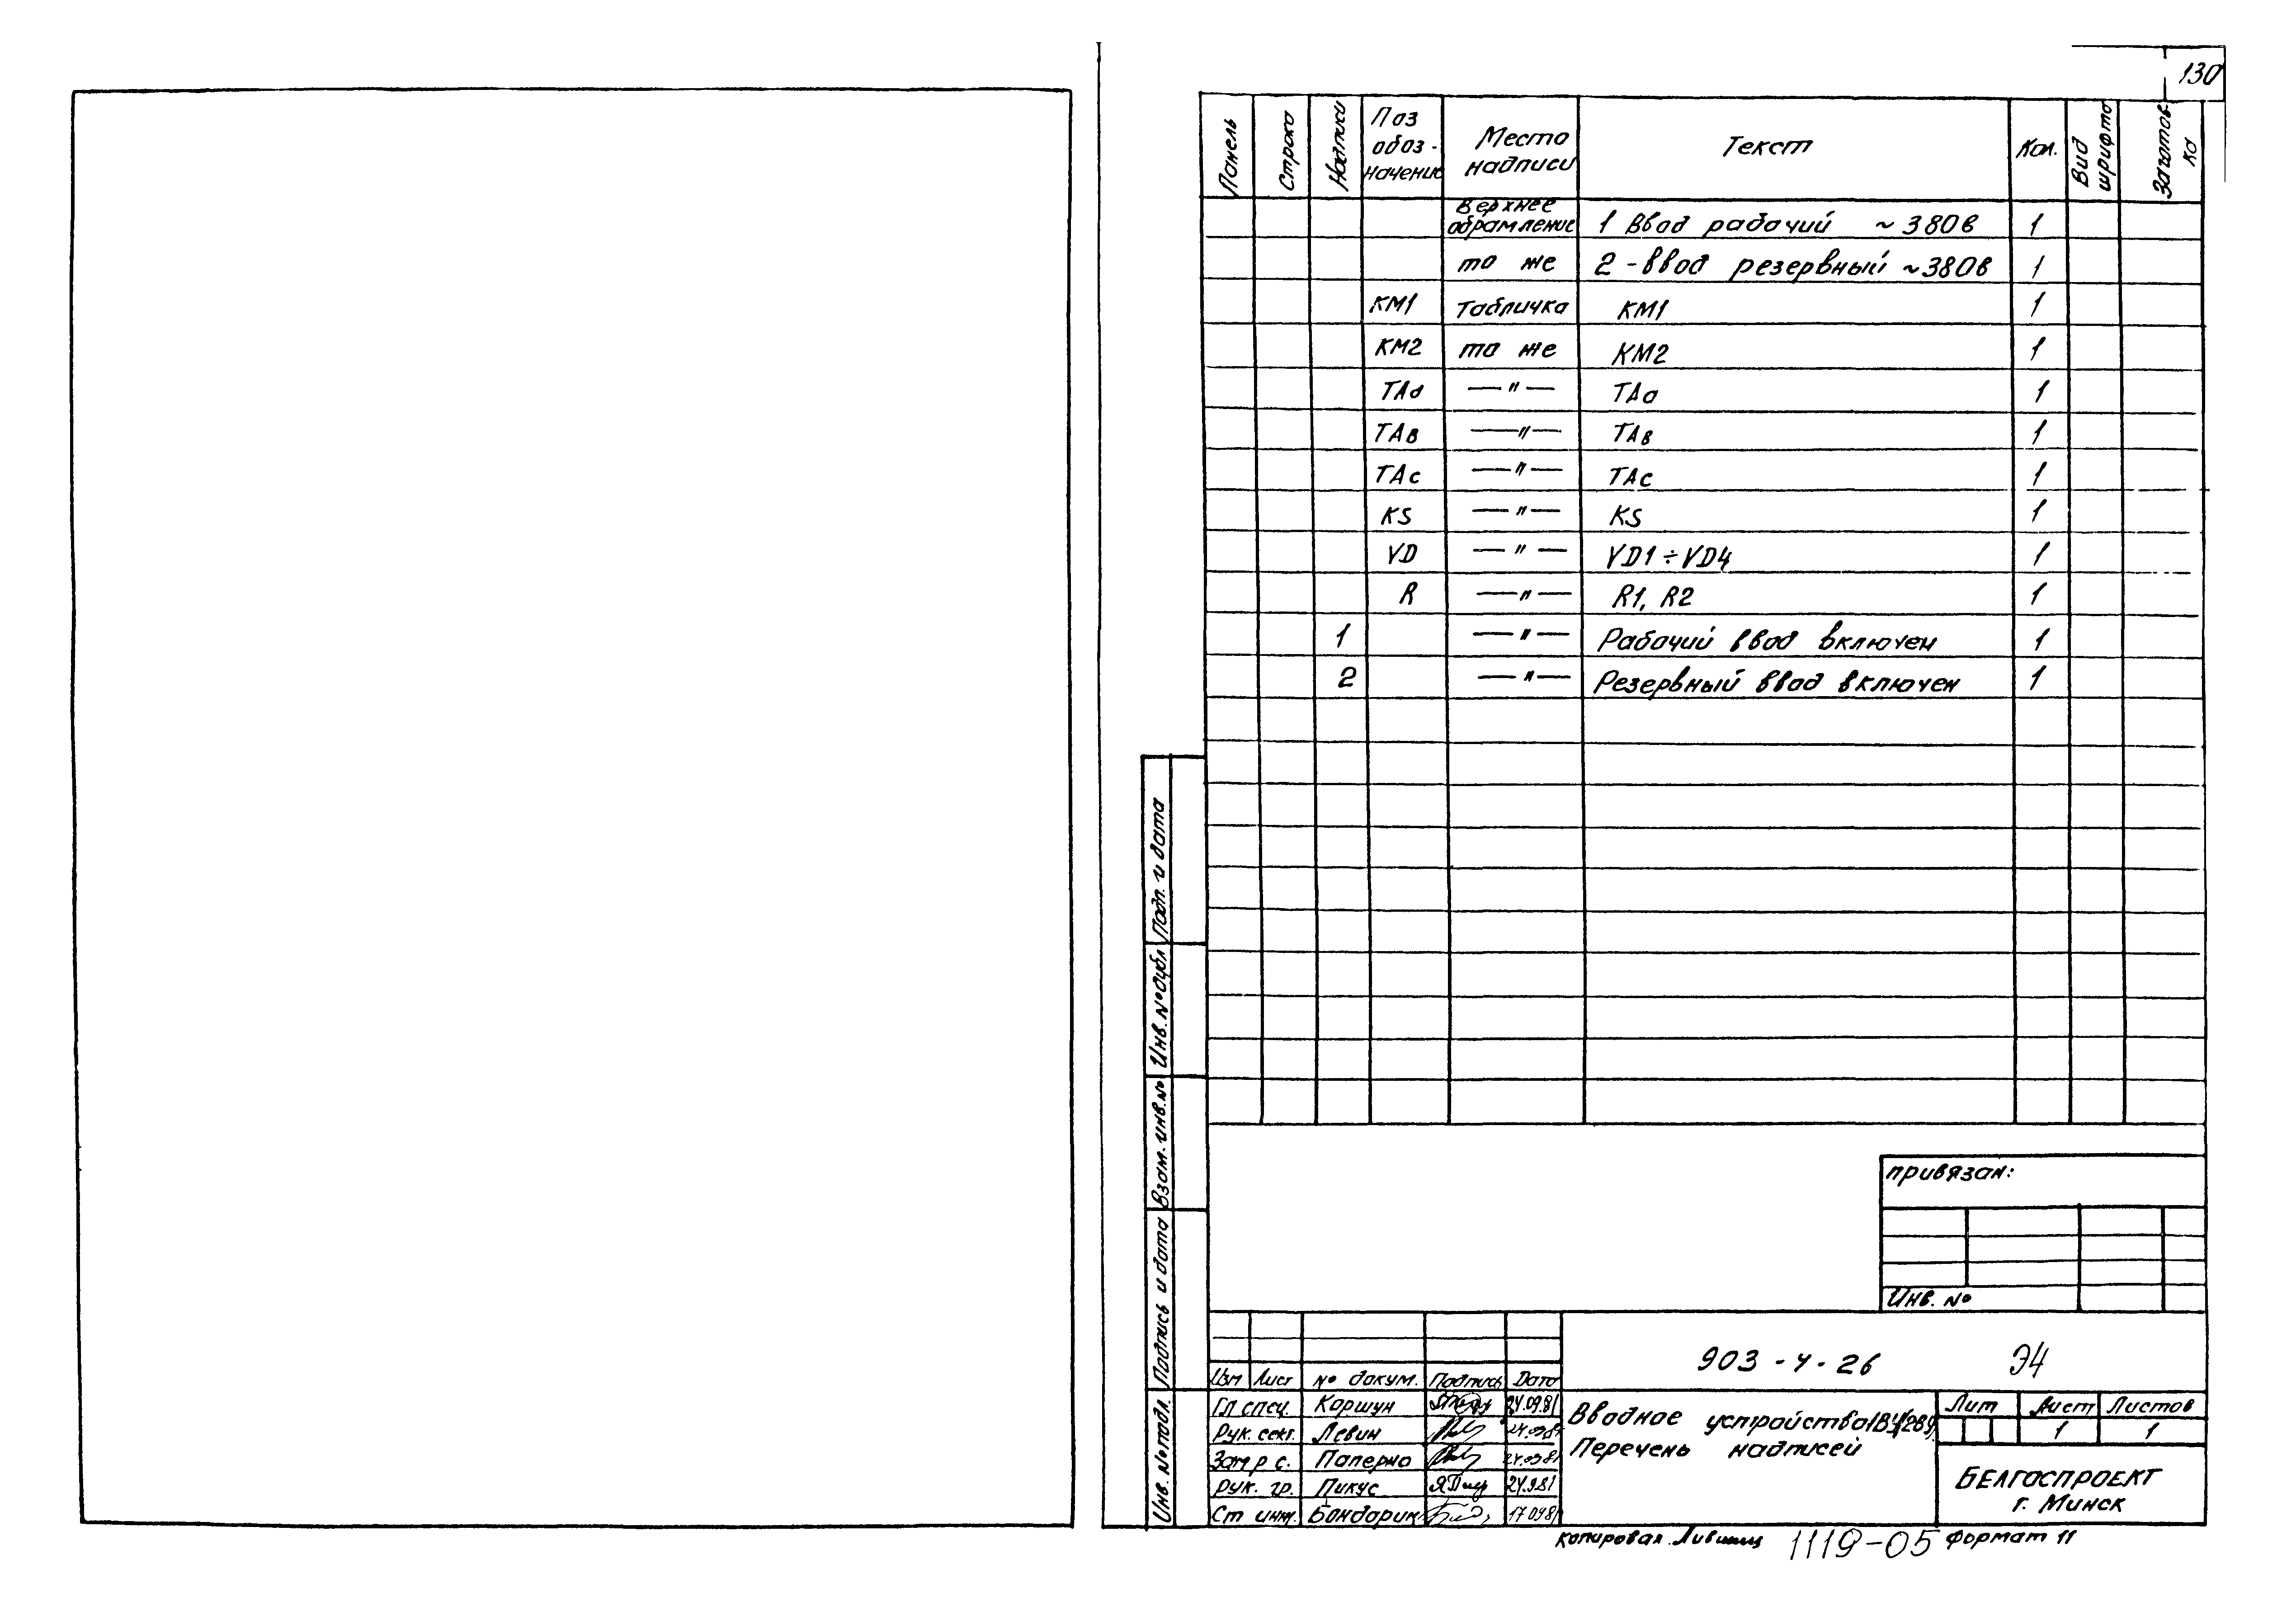 130
Панель Строка Надписи Поз обоз-начение Место надписи Текст Кол. Вид шрифта Заготовка
Верхнее обрамление 1 Ввод рабочий ~ 380в 1
то же 2 - ввод резервный ~380в 1
КМ1 Табличка КМ1 1
КМ2 то же КМ2 1
ТАа — " — ТАа 1
ТАв — " — ТАв 1
ТАс — " — ТАс 1
KS — " — KS 1
VD — " — VD1 ÷ VD4 1
R — " — R1, R2 1
1 — " — Рабочий ввод включен 1
2 — " — Резервный ввод включен 1
Подп. и дата
Инв. № дубл
Взам. инв. №
Подпись и дата
Инв. № подл.
привязан:
Инв. №
903 - 4 - 26 Э4
Изм Лист № докум. Подпись Дата
Гл спец. Коршун 24.09.81
Рук. сект. Левин
Зам р с. Паперно 24.09.81
Рук. гр. Пикус 24.9.81
Ст инж. Бондарик 17 09 81
Вводное устройство
Перечень надписей
Лит Лист Листов
1 1
БЕЛГОСПРОЕКТ
г. Минск
копировал Лившиц 1119-05 Формат 11